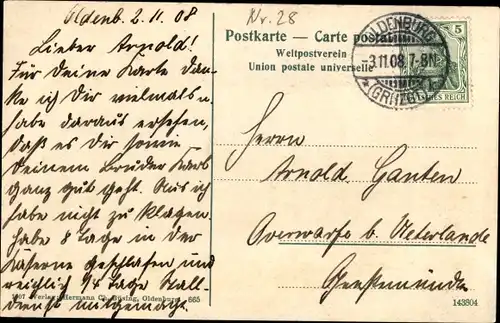 Oldenb. 2.11.08
Nr. 28
Lieber Arnold!
Für Deine Karte dan-
ke ich Dir vielmals u.
habe daraus ersehen,
daß es Dir sowie
Deinem Bruder Karl
ganz gut geht. Auch ich
habe nicht zu klagen.
Habe 8 Tage in der
Kaserne geschlafen und
reichlich 1/4 Tage Stall-
dienst mitgemacht.
Postkarte — Carte postale
Weltpostverein
Union postale universelle
OLDENBURG
-3.11.08. 7-8N
(GRHZGT.)
5
DEUTSCHES REICH
Herrn
Arnold Ganten
Overwarfe b. Neterlande
Geestemünde
1907 Verlag Hermann Ch. Büsing, Oldenburg. 665
143804